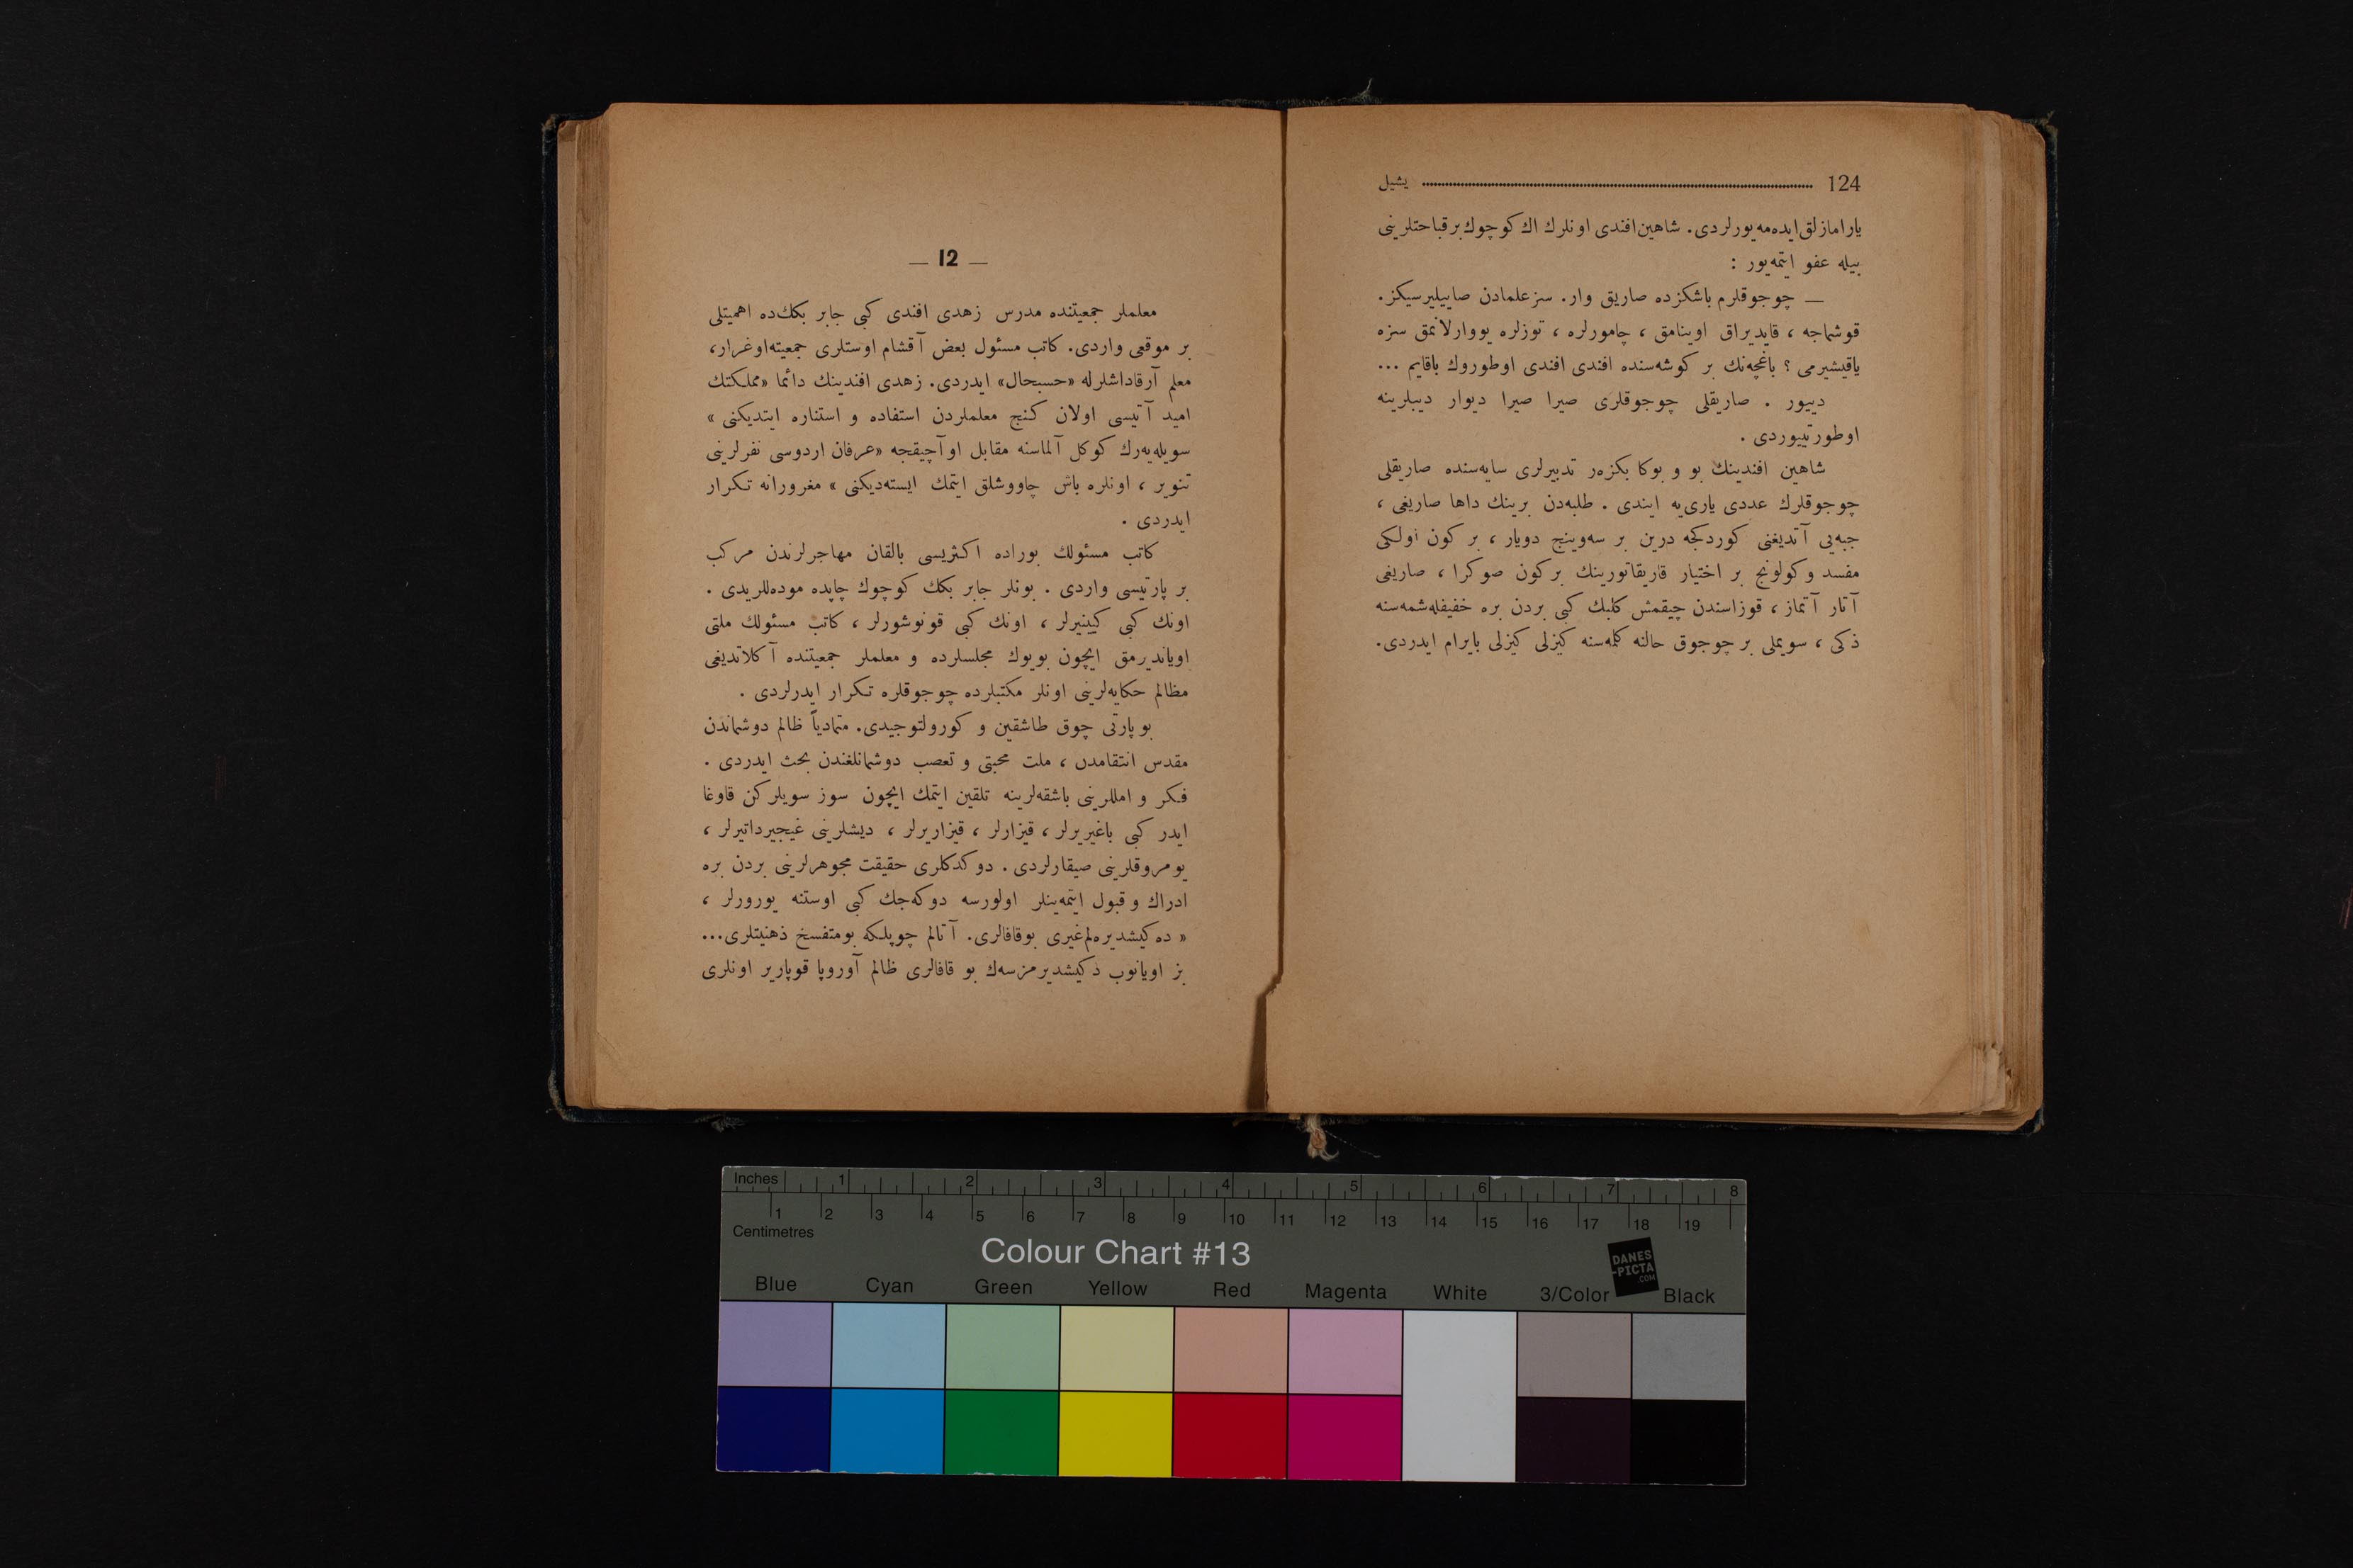 124 يشيل
يارامازلق ايده‌مه‌يورلردى. شاهين افندى اونلرك اك كوچوك بر قباحتلرينى
بيله عفو ايتمه‌يور :
— چوجوقلرم باشكزده صاريق وار. سز علمادن صاييليرسيكز.
قوشماجه ، قايديراق اوينامق ، چامورلره ، توزلره يووارلانمق سزه
ياقيشيرمى ؟ باغچه‌نك بر كوشه‌سنده افندى افندى اوطوروك باقايم ...
دييور . صاريقلى چوجوقلرى صيرا صيرا ديوار ديبلرينه
اوطورتييوردى .
شاهين افندينك بو و بوكا بكزه‌ر تدبيرلرى سايه‌سنده صاريقلى
چوجوقلرك عددى يارى‌يه ايندى . طلبه‌دن برينك داها صاريغى ،
جبه‌يى آتديغنى كوردكجه درين بر سه‌وينج دويار ، بر كون اولكى
مفسد و كولونج بر اختيار قاريقاتورينك بر كون صوكرا ، صاريغى
آتار آتماز ، قوزاسندن چيقمش كلبك كبى بردن بره خفيفله‌شمه‌سنه
ذكى ، سويملى بر چوجوق حالنه كلمه‌سنه كيزلى كيزلى بايرام ايدردى.
— 12 —
معلملر جمعيتنده مدرس زهدى افندى كبى جابر بكك‌ده اهميتلى
بر موقعى واردى. كاتب مسئول بعض آقشام اوستلرى جمعيته اوغرار،
معلم آرقاداشلرله «حسبحال» ايدردى. زهدى افندينك دائما «مملكتك
اميد آتيسى اولان كنج معلملردن استفاده و استناره ايتديكنى »
سويله‌يه‌رك كوكل آلماسنه مقابل او آچيقجه «عرفان اردوسى نفرلرينى
تنوير ، اونلره باش چاووشلق ايتمك ايسته‌ديكنى » مغرورانه تكرار
ايدردى .
كاتب مسئولك بوراده اكثريسى بالقان مهاجرلرندن مركب
بر پارتيسى واردى . بونلر جابر بكك كوچوك چاپده موده‌للريدى .
اونك كبى كيينيرلر ، اونك كبى قونوشورلر ، كاتب مسئولك ملتى
اوياندیرمق ايچون بويوك مجلسلرده و معلملر جمعيتنده آكلاتديغى
مظالم حكايه‌لرينى اونلر مكتبلرده چوجوقلره تكرار ايدرلردى .
بو پارتى چوق طاشقين و كورولتوجيدى. متمادياً ظالم دوشماندن
مقدس انتقامدن ، ملت محبتى و تعصب دوشمانلغندن بحث ايدردى .
فكر و امللرينى باشقه‌لرينه تلقين ايتمك ايچون سوز سويلركن قاوغا
ايدر كبى باغيريرلر ، قيزارلر ، قيزاريرلر ، ديشلرينى غيجيرداتيرلر ،
يومروقلرينى صيقارلردى . دوكدكلرى حقيقت مجوهرلرينى بردن بره
ادراك و قبول ايتمه‌ينلر اولورسه دوكه‌جك كبى اوستنه يورورلر ،
« ده‌كيشديره‌لم غيرى بو قافالرى. آتالم چوپلكه بو متفسخ ذهنيتلرى...
بز اويانوب دكيشديرمزسه‌ك بو قافالرى ظالم آوروپا قوپارير اونلرى
Inches 1 2 3 4 5 6 7 8
1 2 3 4 5 6 7 8 9 10 11 12 13 14 15 16 17 18 19
Centimetres
Colour Chart #13
DANES
-PICTA
.COM
Blue Cyan Green Yellow Red Magenta White 3/Color Black